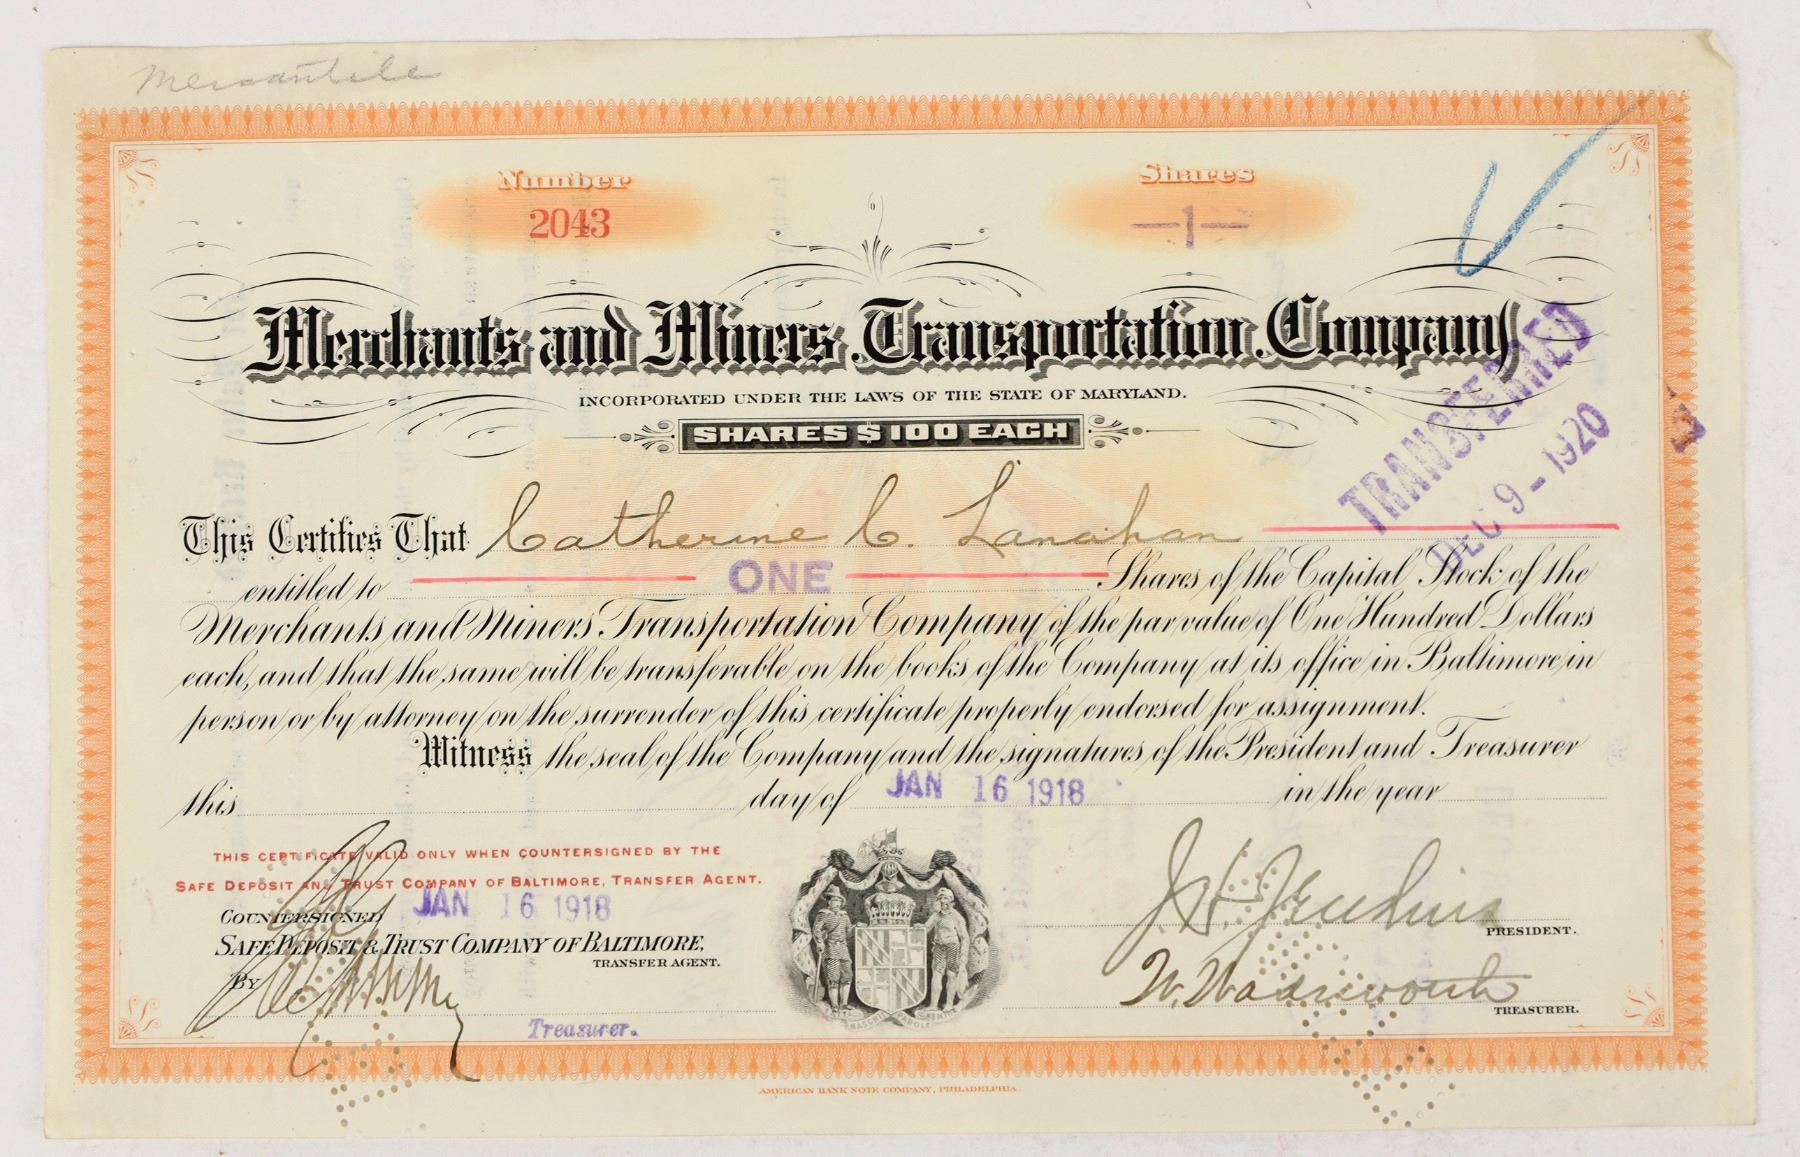 Mercantile
Number
2043
Shares
—1—
Merchants and Miners Transportation Company
INCORPORATED UNDER THE LAWS OF THE STATE OF MARYLAND.
SHARES $100 EACH
TRANSFERRED
DEC 9 - 1920
This Certifies That Catherine C. Lanahan
entitled to ONE Shares of the Capital Stock of the
Merchants and Miners Transportation Company of the par value of One Hundred Dollars
each, and that the same will be transferable on the books of the Company at its office in Baltimore in
person or by attorney on the surrender of this certificate properly endorsed for assignment.
Witness the seal of the Company and the signatures of the President and Treasurer
this day of JAN 16 1918 in the year
THIS CERTIFICATE VALID ONLY WHEN COUNTERSIGNED BY THE
SAFE DEPOSIT AND TRUST COMPANY OF BALTIMORE, TRANSFER AGENT.
COUNTERSIGNED JAN 16 1918
SAFE DEPOSIT & TRUST COMPANY OF BALTIMORE,
TRANSFER AGENT.
BY
Treasurer.
J. H. Jenkins
PRESIDENT.
W. Wadsworth
TREASURER.
AMERICAN BANK NOTE COMPANY, PHILADELPHIA